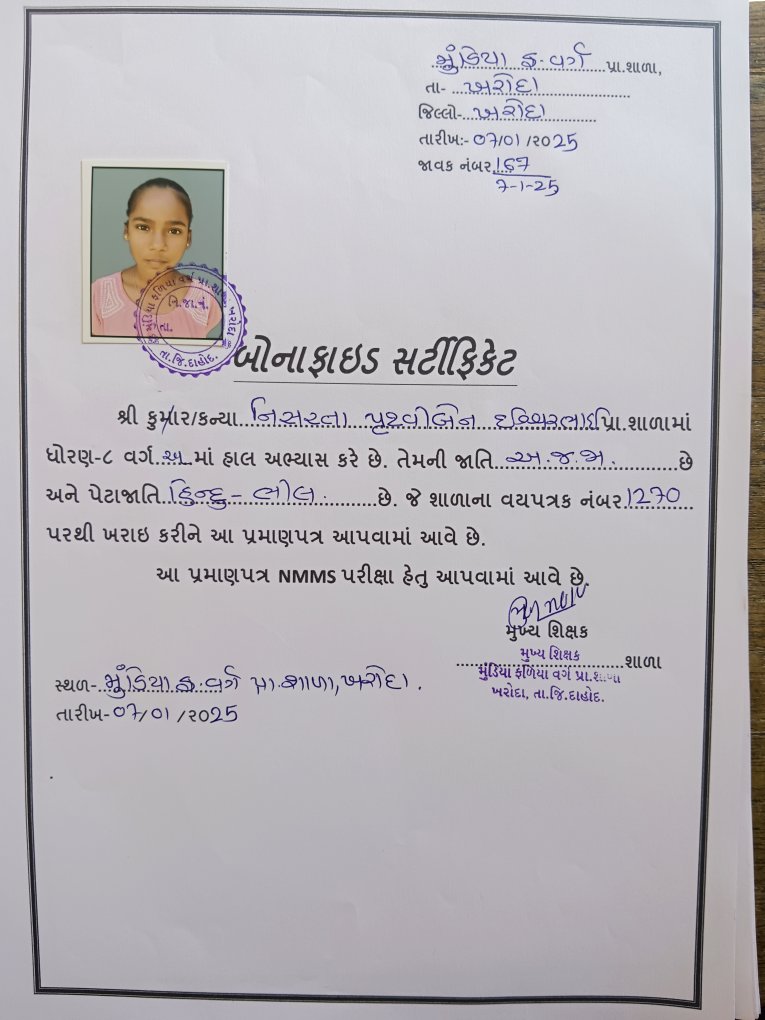 મુંડિયા ફ. વર્ગ પ્રા.શાળા,
તા- ખરોદા
જિલ્લો- ખરોદા
તારીખ:- 07/01 /૨૦25
જાવક નંબર 167
7-1-25
મુંડિયા ફળિયા વર્ગ પ્રા.શાળા ખરોદા
નિ.જા.નં.
તા.
તા.જિ.દાહોદ.
બોનાફાઇડ સર્ટીફિકેટ
શ્રી કુમાર/કન્યા નિસરતા પૃથ્વીબેન ઇશ્વરભાઇ પ્રા.શાળામાં
ધોરણ-૮ વર્ગ અ માં હાલ અભ્યાસ કરે છે. તેમની જાતિ અ.જ.જા. છે
અને પેટાજાતિ હિન્દુ - ભીલ. છે. જે શાળાના વયપત્રક નંબર 1270
પરથી ખરાઇ કરીને આ પ્રમાણપત્ર આપવામાં આવે છે.
આ પ્રમાણપત્ર NMMS પરીક્ષા હેતુ આપવામાં આવે છે.
મુખ્ય શિક્ષક
મુખ્ય શિક્ષક
શાળા
મુંડિયા ફળિયા વર્ગ પ્રા.શાળા
ખરોદા, તા.જિ.દાહોદ.
સ્થળ- મુંડિયા ફ. વર્ગ પ્રા. શાળા, ખરોદા.
તારીખ- 07/01 /૨૦25